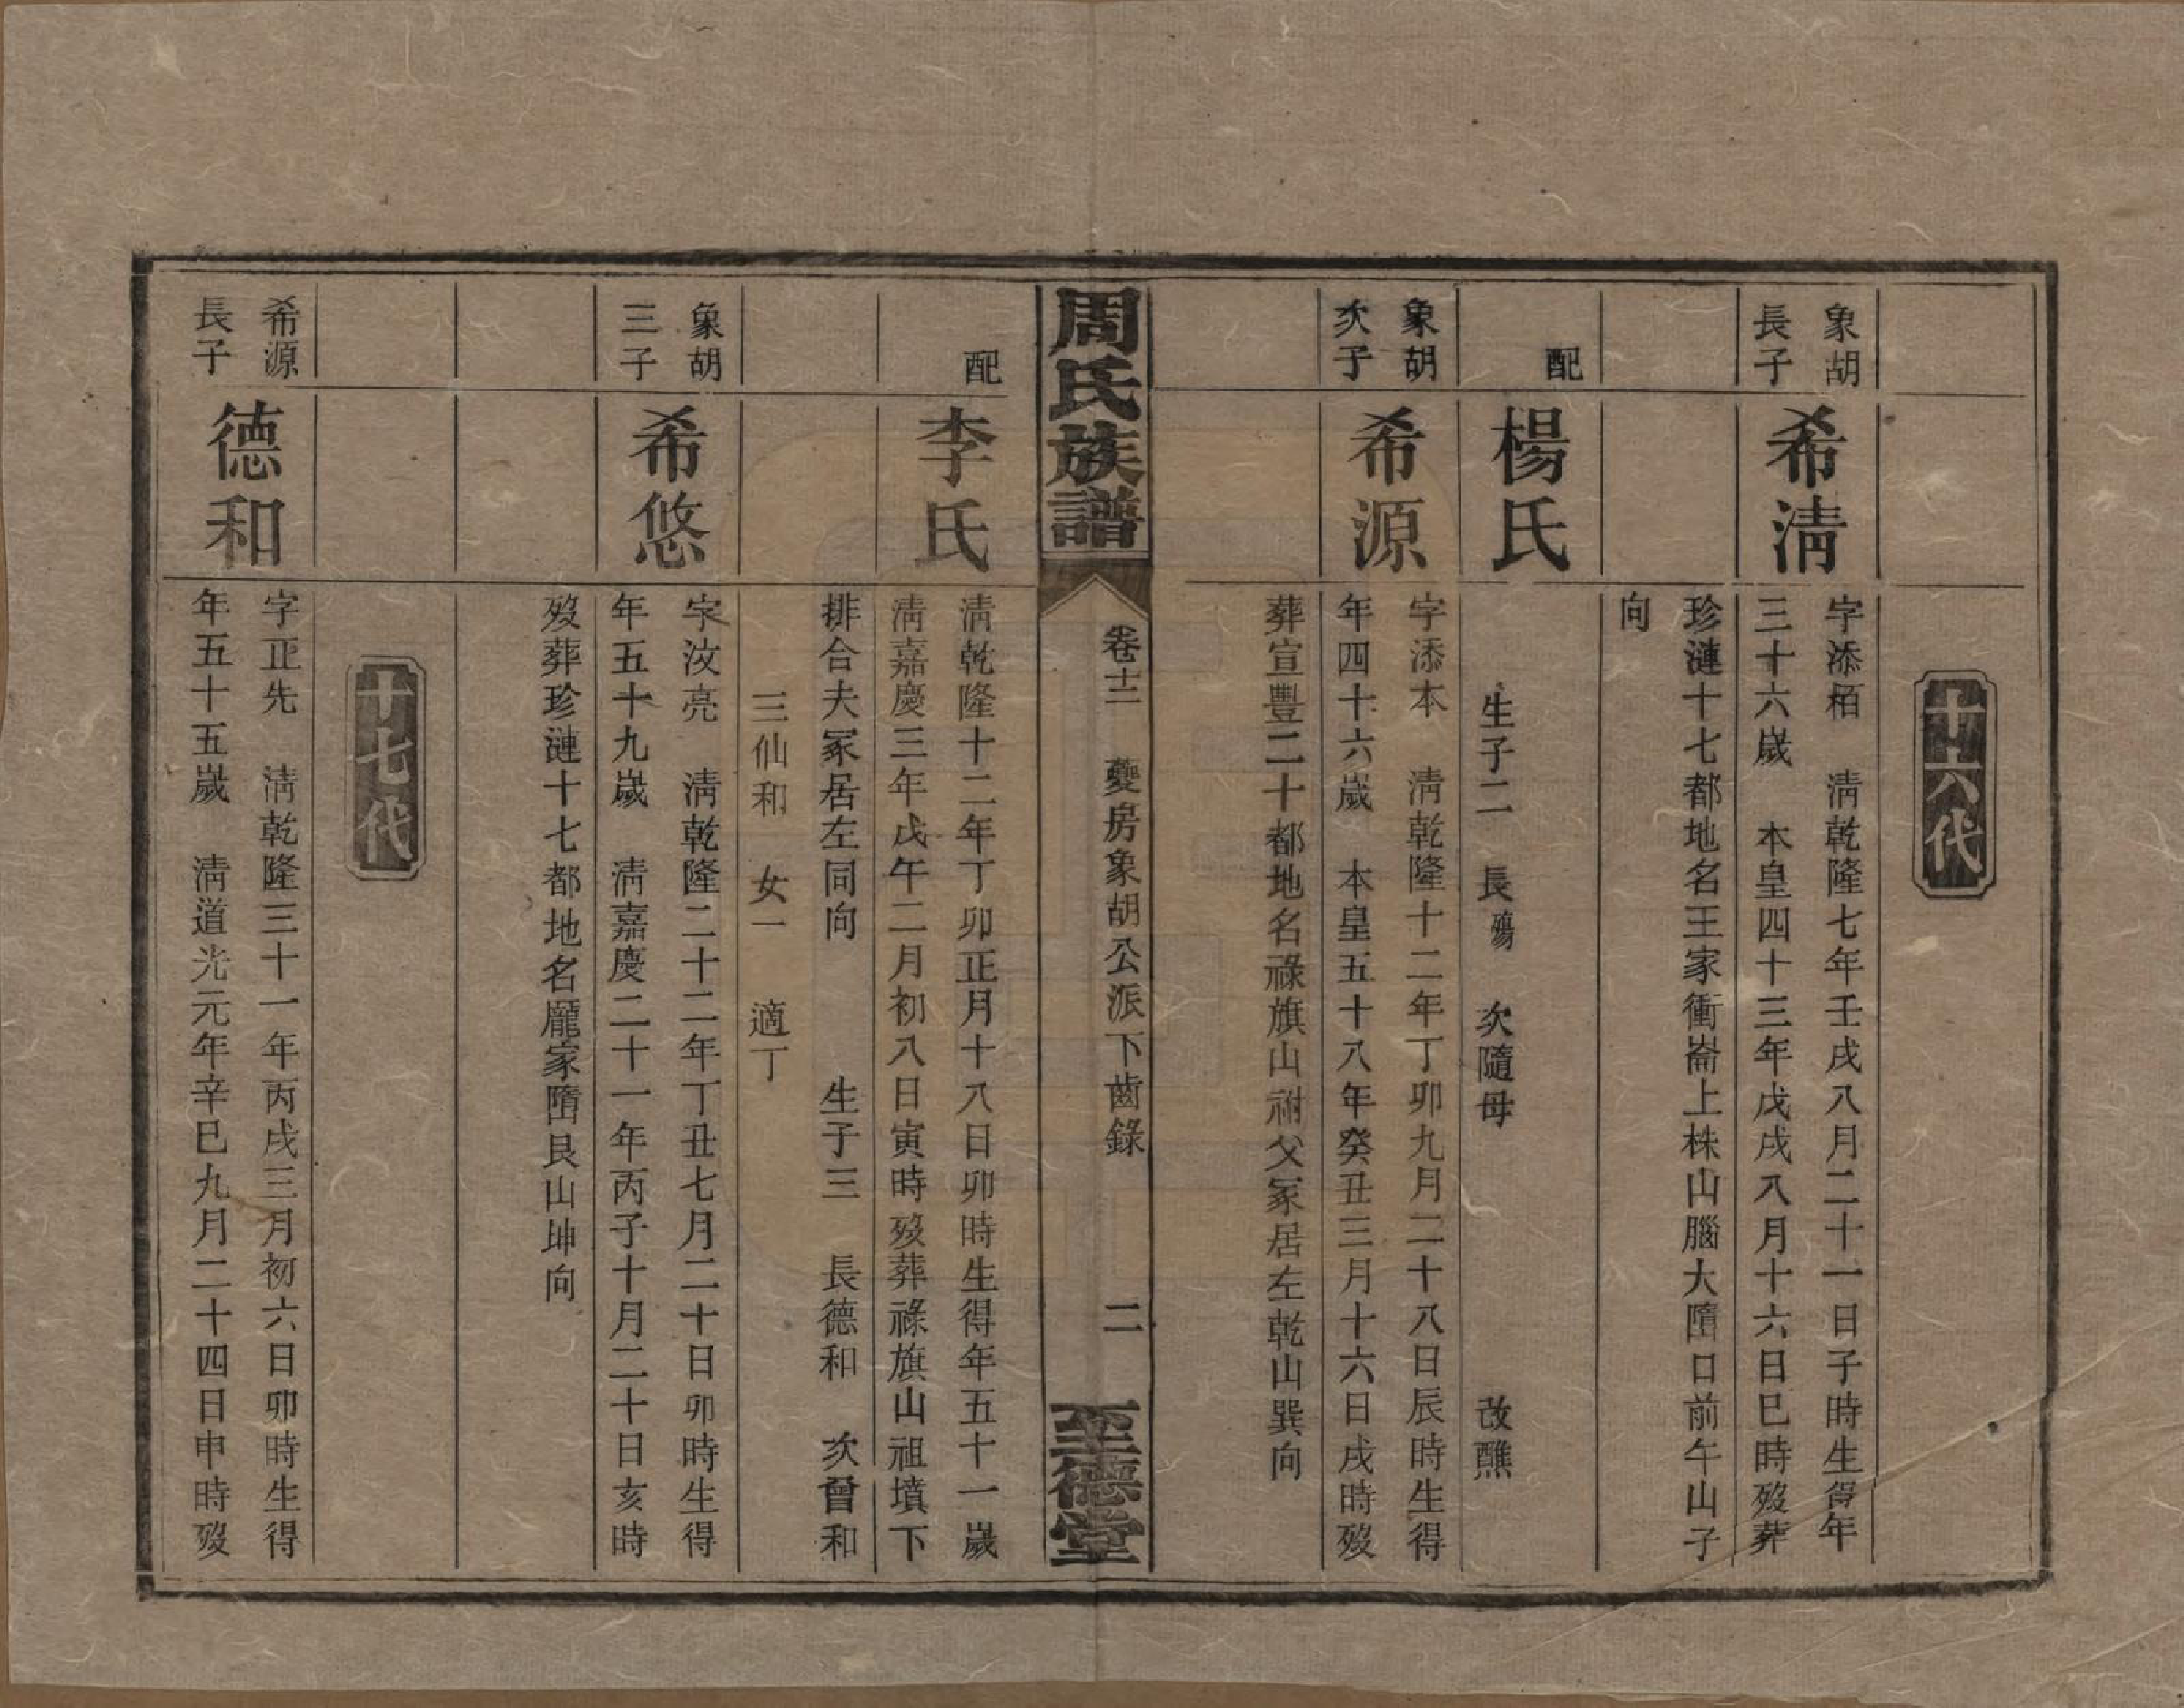 十六代
象胡
長子
希淸
字添栢　淸乾隆七年壬戌八月二十一日子時生得年
三十六歲　本皇四十三年戊戌八月十六日巳時歿葬
珍漣十七都地名王家衝崙上株山腦大隋口前午山子
向
配
楊氏
生子二　長殤　次隨母　改醮
象胡
次子
希源
字添本　淸乾隆十二年丁卯九月二十八日辰時生得
年四十六歲　本皇五十八年癸丑三月十六日戌時歿
葬宣豐二十都地名祿旗山祔父冢居左乾山巽向
周氏族譜
卷十二　夔房象胡公派下齒錄　二
至德堂
配
李氏
淸乾隆十二年丁卯正月十八日卯時生得年五十一歲
淸嘉慶三年戊午二月初八日寅時歿葬祿旗山祖墳下
排合夫冢居左同向　生子三　長德和　次曾和
三仙和　女一　適丁
象胡
三子
希悠
字汶亮　淸乾隆二十二年丁丑七月二十日卯時生得
年五十九歲　淸嘉慶二十一年丙子十月二十日亥時
歿葬珍漣十七都地名龎家隋艮山坤向
十七代
希源
長子
德和
字正先　淸乾隆三十一年丙戌三月初六日卯時生得
年五十五歲　淸道光元年辛巳九月二十四日申時歿